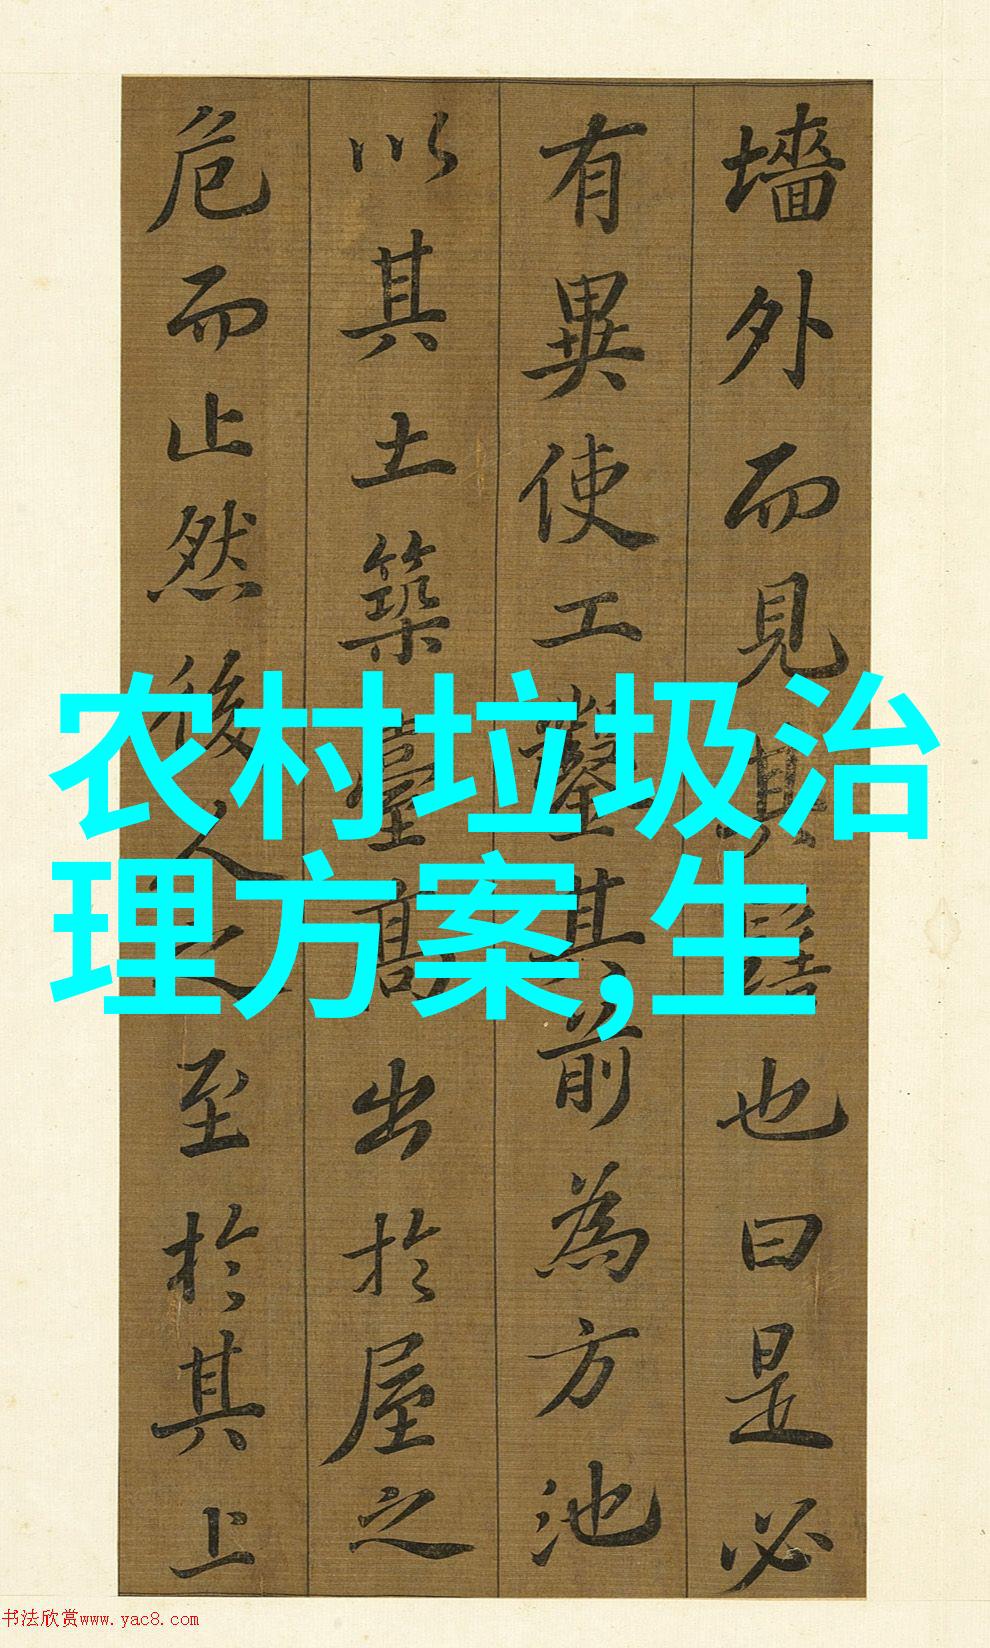 墻外而見其髻也曰是必
有異使工鑿其前為方池
以其土築臺高出於屋之
危而止然後人之至於其上
农村垃圾治
理方案,生
书法欣赏www.yac8.com